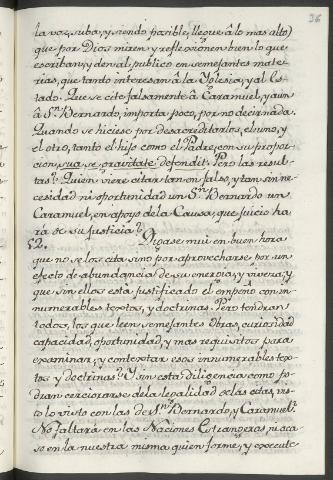 36
la voz, suba, y siendo posible, llegue â lo mas alto)
que por Dios miren y reflexionen bien lo que
escriban, y den al publico en semejantes mate-
rias, que tanto interesan â la Yglesia, y al Es-
tado. Que se cite falsamente â Caramuel, y aun
â Sn. Bernardo, importa poco, por no decir nada.
Quando se hiciese por desacreditarlos, el uno, y
el otro, tanto el hijo como el Padre, con su propor-
cion, sua se gravitate defendit. Pero las resul-
tas? Quien viere citar tan en falso, y tan sin ne-
cesidad ni oportunidad un Sn. Bernardo un
Caramuel, en apoyo de la Causa, que juicio ha-
ra de su justicia?
52. Digase mui en buen hora
que no se les cita sino por aprovecharse por un
efecto de abundancia de su energia, y viveza, y
que sin ellos está justificado el empeño con in-
numerables textos, y doctrinas. Pero tendran
todos, los que leen semejantes Obras, curiosidad
capacidad, oportunidad, y mas requisitos para
examinar, y contextar esos innumerables tex-
tos, y doctrinas? Y sin esta diligencia como po-
dran cerciorarse de la legalidad de las citas, vis-
to lo visto con las de Sn. Bernardo, y Caramuel?
No faltará en las Naciones Estrangeras ni aca-
so en la nuestra misma quien forme, y execute